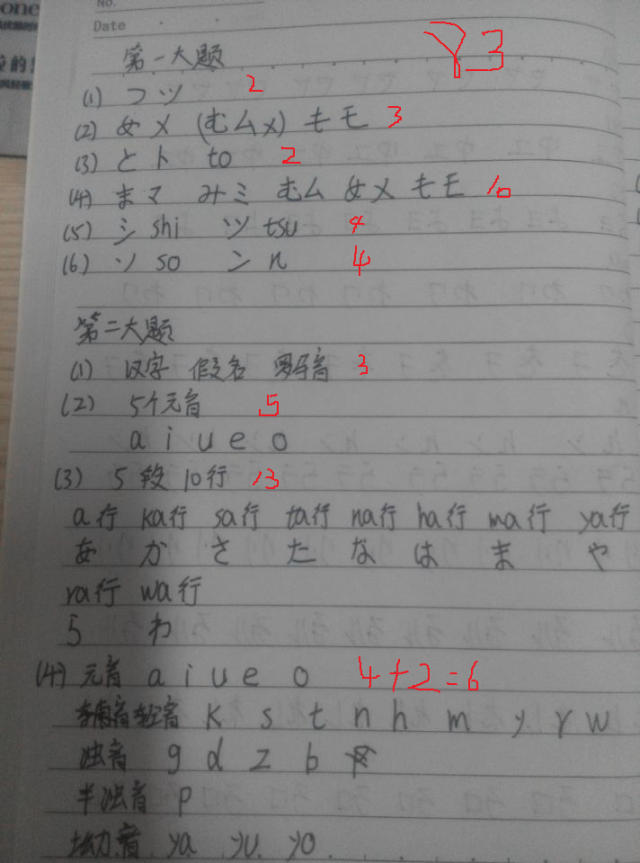 No.
Date
第一大题 Y3
(1) つツ 2
(2) 女メ (むムメ) もモ 3
(3) とト to 2
(4) まマ みミ むム 女メ もモ 10
(5) シ shi ツ tsu 4
(6) ソ so ン n 4
第二大题
(1) 汉字 假名 罗马音 3
(2) 5个元音 5
a i u e o
(3) 5段 10行 13
a行 ka行 sa行 ta行 na行 ha行 ma行 ya行
あ か さ た な は ま や
ra行 wa行
ら わ
(4) 元音 a i u e o 4+2=6
辅音 k s t n h m y r w
浊音 g d z b
半浊音 p
拗音 ya yu yo